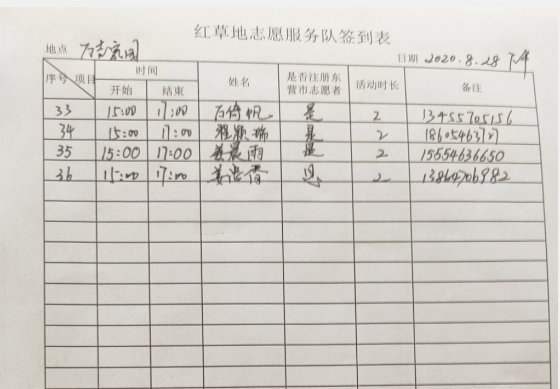 红草地志愿服务队签到表
地点 万吉家园 日期 2020.8.28 下午
序号 项目 时间 姓名 是否注册东营市志愿者 活动时长 备注
开始 结束
33 15:00 17:00 是 2 13455705156
34 15:00 17:00 是 2
35 15:00 17:00 姜晨雨 是 2 15554636650
36 15:00 17:00 是 2 13864706982